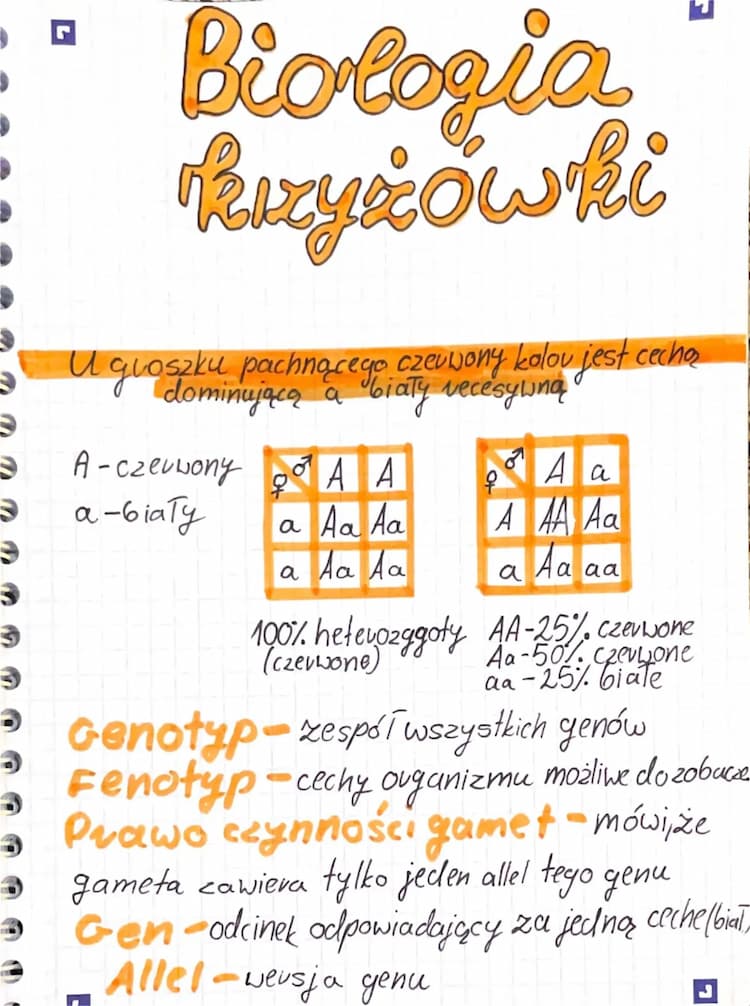 Biologia
krzyżówki
U groszku pachnącego czerwony kolor jest cechą
dominującą a biały recesywną
A - czerwony
a - biały
♀ ♂ A A
a Aa Aa
a Aa Aa
100% heterozygoty
(czerwone)
♀ ♂ A a
A AA Aa
a Aa aa
AA - 25% czerwone
Aa - 50% czerwone
aa - 25% białe
Genotyp - zespół wszystkich genów
Fenotyp - cechy organizmu możliwe do zobacze
Prawo czynności gamet - mówi, że
gameta zawiera tylko jeden allel tego genu
Gen - odcinek odpowiadający za jedną cechę (biał,
Allel - wersja genu